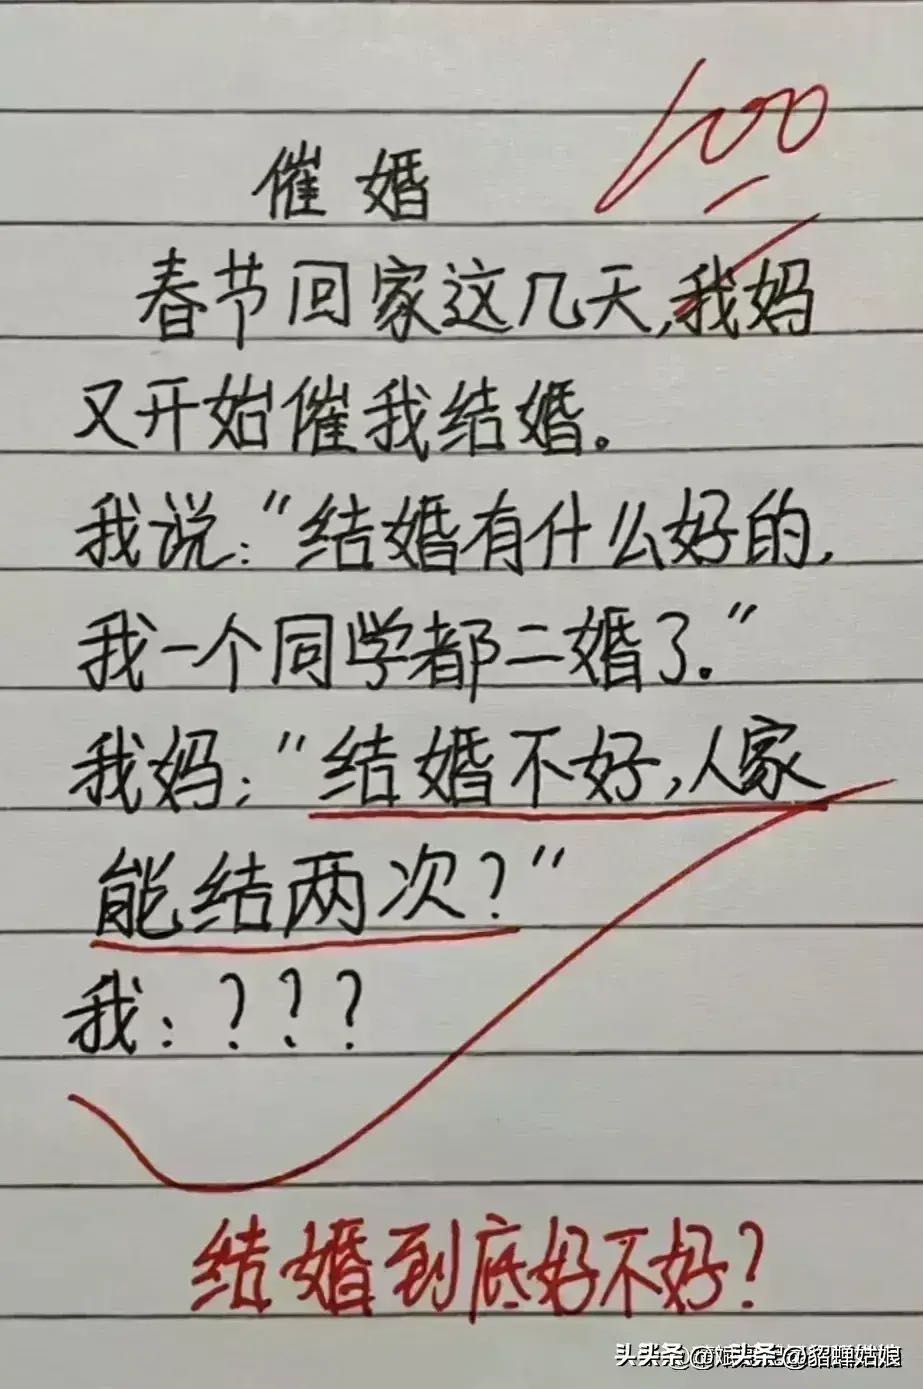 100
催婚
春节回家这几天,我妈
又开始催我结婚。
我说:“结婚有什么好的,
我一个同学都二婚了。”
我妈:“结婚不好,人家
能结两次?”
我:???
结婚到底好不好?
头条 @貂蝉姑娘